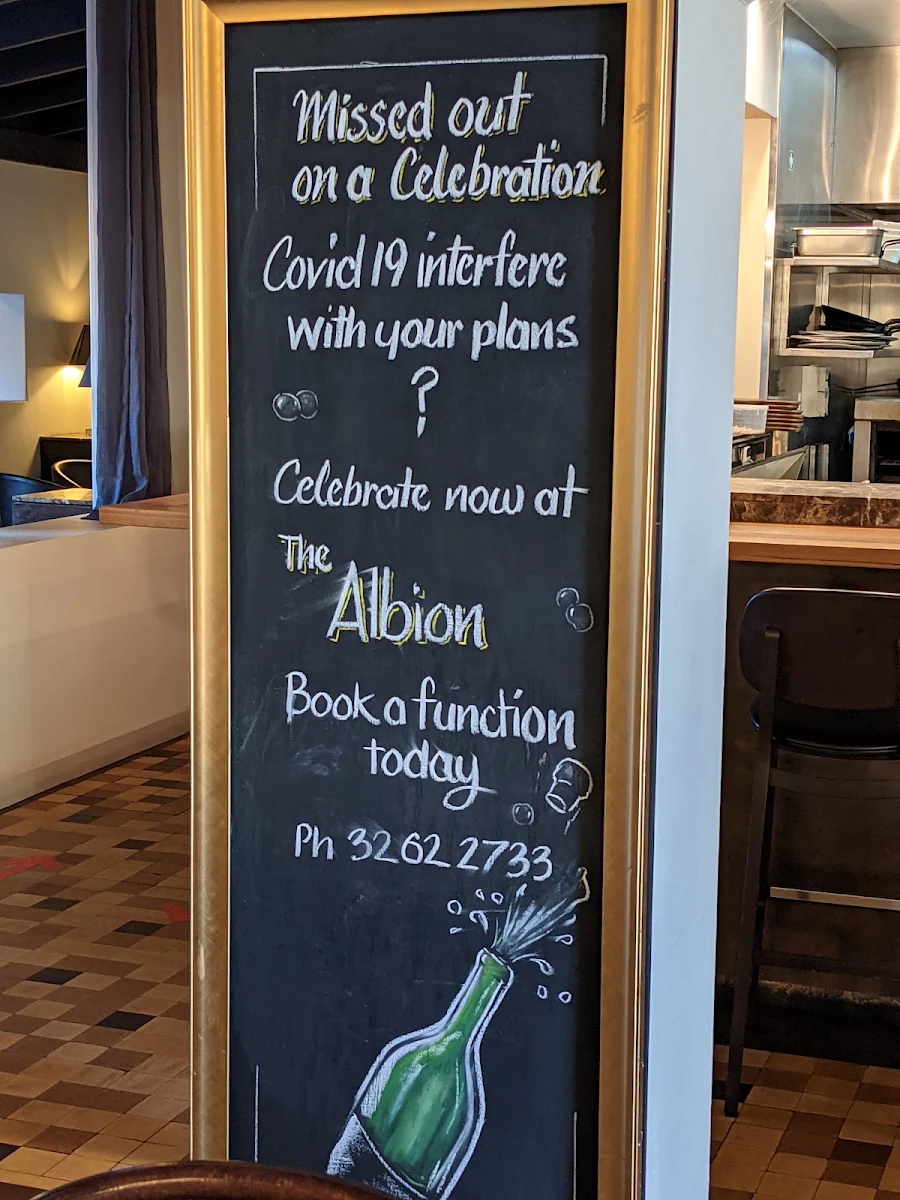 Missed out
on a Celebration
Covid 19 interfere
with your plans
?
Celebrate now at
The
Albion
Book a function
today
Ph 3262 2733